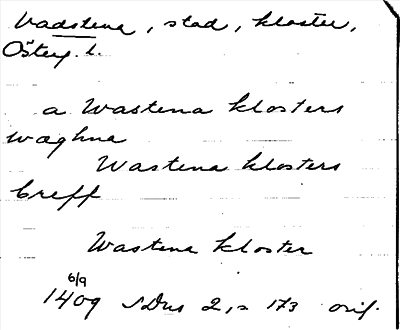 Vadstena, stad, kloster,
Österg. l.
a Wastena klosters
wæghna
Wastena klosters
breff
Wastena kloster
6/9
1409 SDns 2, s 173 orig.